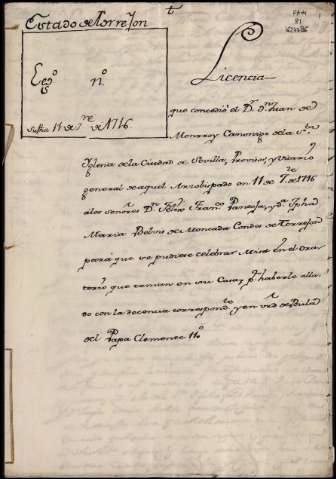 t
Estado de Torreson
Leg.º n.º
su fha 11 de 7.re de 1716
Licencia
que concedió el D.r D.n Juan de
Monrroy Canonigo de la S.ta
Yglesia de la Ciudad de Sevilla, Provisor, y Vicario
general de aquel Arzobispado en 11 de 7.re de 1716
a los señores D.n Franco y D.a
Maria de Moncada Condes de Torreson
para que se pudiese celebrar Missa en el Ora-
torio que tenian en su Casa, p.r haberle alla-
do con la decencia correspond.te y en vir.d de Bula
del Papa Clemente 11.º